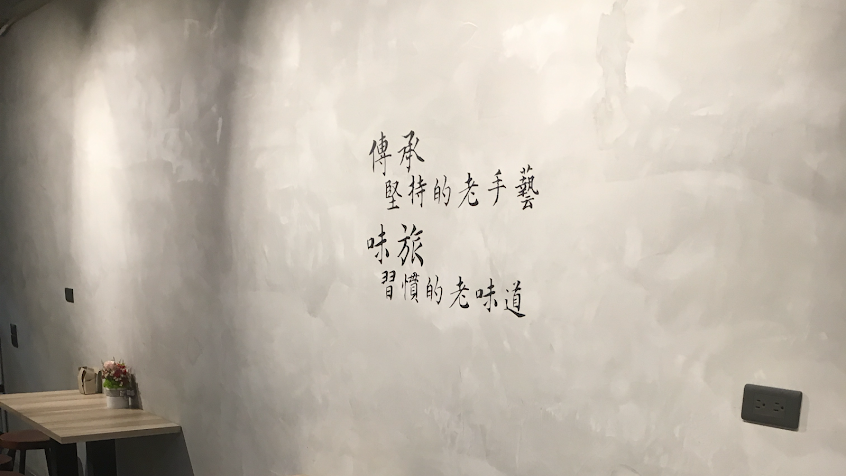 傳承
堅持的老手藝
味旅
習慣的老味道